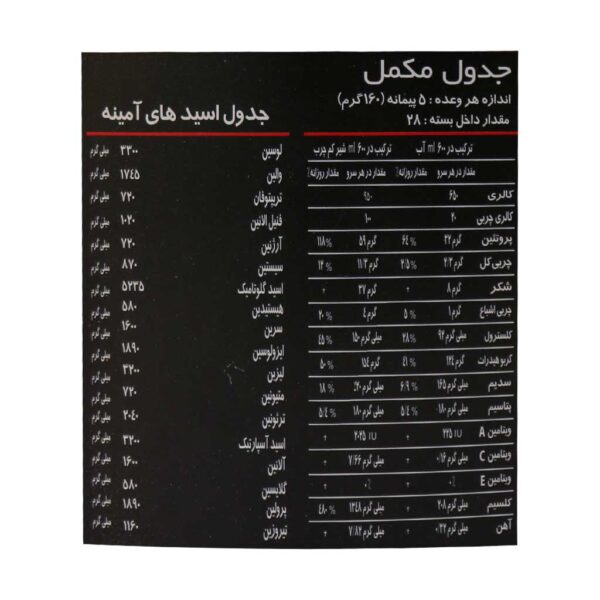 جدول مکمل
اندازه هر وعده : ۵ پیمانه (۱۶۰گرم)
مقدار داخل بسته : ۲۸
ترکیب در ۶۰۰ ml آب ترکیب در ۶۰۰ ml شیر کم چرب
مقدار در هر سرو مقدار روزانه٪ مقدار در هر سرو مقدار روزانه٪
کالری ۶۵۰ ۹۵۰
کالری چربی ۲۰ ۱۰۰
پروتئین گرم ۳۲ ۶۴٪ گرم ۵۹ ۱۱۸٪
چربی کل گرم ۲/۲ ۲/۵٪ گرم ۱۱/۲ ۱۲٪
شکر گرم ۸ گرم ۳۷
چربی اشباع گرم ۱ ۵٪ گرم ۴ ۲۰٪
کلسترول میلی گرم ۹۲ ۲۸٪ میلی گرم ۱۵۰ ۴۵٪
کربوهیدرات گرم ۱۲۴ ۴۱٪ گرم ۱۵۴ ۵۰٪
سدیم میلی گرم ۱۶۵ ۶/۹٪ میلی گرم ۱۸٪
پتاسیم میلی گرم ۱۸۰ ۵/۴٪ میلی گرم ۱۸۰ ۵/۴٪
ویتامین A ۲۲۵ IU ۲۰۲۵ IU
ویتامین C میلی گرم ۰/۱۶ میلی گرم ۷/۶۶
ویتامین E ۰٪ ۰٪
کلسیم میلی گرم ۲۰۸ میلی گرم ۱۳۴۸ ۴۸۰٪
آهن میلی گرم ۰/۲ میلی گرم ۷/۸۲
جدول اسید های آمینه
لوسین ۳۳۰۰ میلی گرم
والین ۱۷۴۵ میلی گرم
تریپتوفان ۷۲۰ میلی گرم
فنیل الانین ۱۰۲۰ میلی گرم
آرژنین ۷۲۰ میلی گرم
سیستین ۸۷۰ میلی گرم
اسید گلوتامیک ۵۲۳۵ میلی گرم
هیستیدین ۵۸۰ میلی گرم
سرین ۱۶۰۰ میلی گرم
ایزولوسین ۱۸۹۰ میلی گرم
لیزین ۳۲۰۰ میلی گرم
متیونین ۷۲۰ میلی گرم
ترئونین ۲۰۴۰ میلی گرم
اسید آسپارتیک ۳۲۰۰ میلی گرم
آلانین ۱۶۰۰ میلی گرم
گلایسین ۵۸۰ میلی گرم
پرولین ۱۸۹۰ میلی گرم
تیروزین ۱۱۶۰ میلی گرم